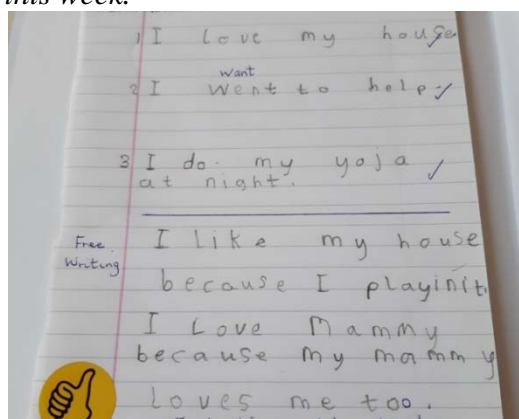 this week.
1 I love my house.
want
2 I went to help.
3 I do. my yoja
at night.
Free
Writing
I like my house
because I playinit.
I Love Mammy
because my mammy
loves me too.